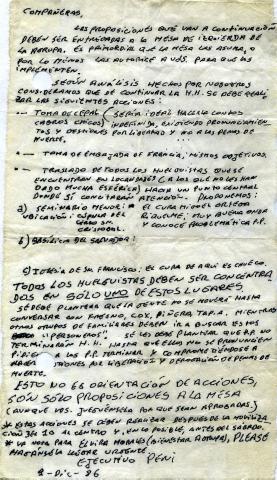 COMPAÑERAS,
LAS PROPOSICIONES QUE VAN A CONTINUACION
DEBEN SER ENTREGADAS A LA MESA DE IZQUIERDA DE
LA . ES PRIMORDIAL QUE LA MESA LAS ASUMA, O
POR LO MENOS LAS AUTORICE A UDS. PARA QUE LAS
IMPLEMENTEN.
SEGUN ANALISIS HECHOS POR NOSOTROS
CONSIDERAMOS QUE DE CONTINUAR LA H.H. SE DEBE REALI
ZAR LAS SIGUIENTES ACCIONES:
- TOMA DE CEPAL (SERIA IDEAL HACERLA CON LOS
CABROS CHICOS) INDEFINIDA, EXIGIENDO PRONUNCIAMIEN
TOS Y GESTIONES POR LIBERTAD Y NO A LAS PENAS DE
MUERTE.
- TOMA DE EMBAJADA DE FRANCIA, MISMOS OBJETIVOS.
- TRASLADO DE TODOS LOS HUELGUISTAS QUE SE
ENCUENTRAN EN LOCALIDADES (A LAS QUE NO LES HAN
DADO MUCHA ESFERICA) HACIA UN PUNTO CENTRAL
DONDE SI CONCITARAN ATENCION. PROPONEMOS:
a) SEMINARIO MENOR: EL CURA MIGUEL ORTEGA
UBICACION: RIQUELME, MUY BUENA ONDA
CERRO SN. Y CONOCE PROBLEMATICA P.P.
CRISTOBAL.
b) BASILICA DEL SALVADOR:
c) IGLESIA DE SN. FRANCISCO: EL CURA DE AQUI ES CHUECO.
TODOS LOS HUELGUISTAS DEBEN SER CONCENTRA
DOS EN SOLO UNO DE ESTOS LUGARES.
SE DEBE PLANTEAR QUE LA GENTE NO SE MOVERA HASTA
CONVERSAR CON FRESNO, COX, PIÑERA, TAPIA. MIENTRAS
OTROS GRUPOS DE FAMILIARES DEBEN IR A BUSCAR A ESTOS
PERSONEROS. SE LES DEBE PLANTEAR QUE A P.P. NO
TERMINARAN H.H. HASTA QUE ELLOS NO SE PRONUNCIEN
PIDIENDO A LOS P.P. TERMINAR Y COMPROMETIENDOSE A
HACER GESTIONES POR LIBERTAD Y DEROGACION DE PENAS DE
MUERTE.
ESTO NO ES ORIENTACION DE ACCIONES,
SON SOLO PROPOSICIONES A LA MESA
(AUNQUE UDS. JUEGUENSELA POR QUE SEAN APROBADAS.)
* ESTAS ACCIONES SE DEBEN REALIZAR DESPUES DE LA MOVILIZA
CION DEL AL CENTRO Y, EN LO POSIBLE, ANTES DEL SABADO.
* LA NOTA PARA ELVIRA MORALES (BIENESTAR), PLEASE
HAGANSELA LLEGAR URGENTE.
EJECUTIVO PENI
2-DIC-86